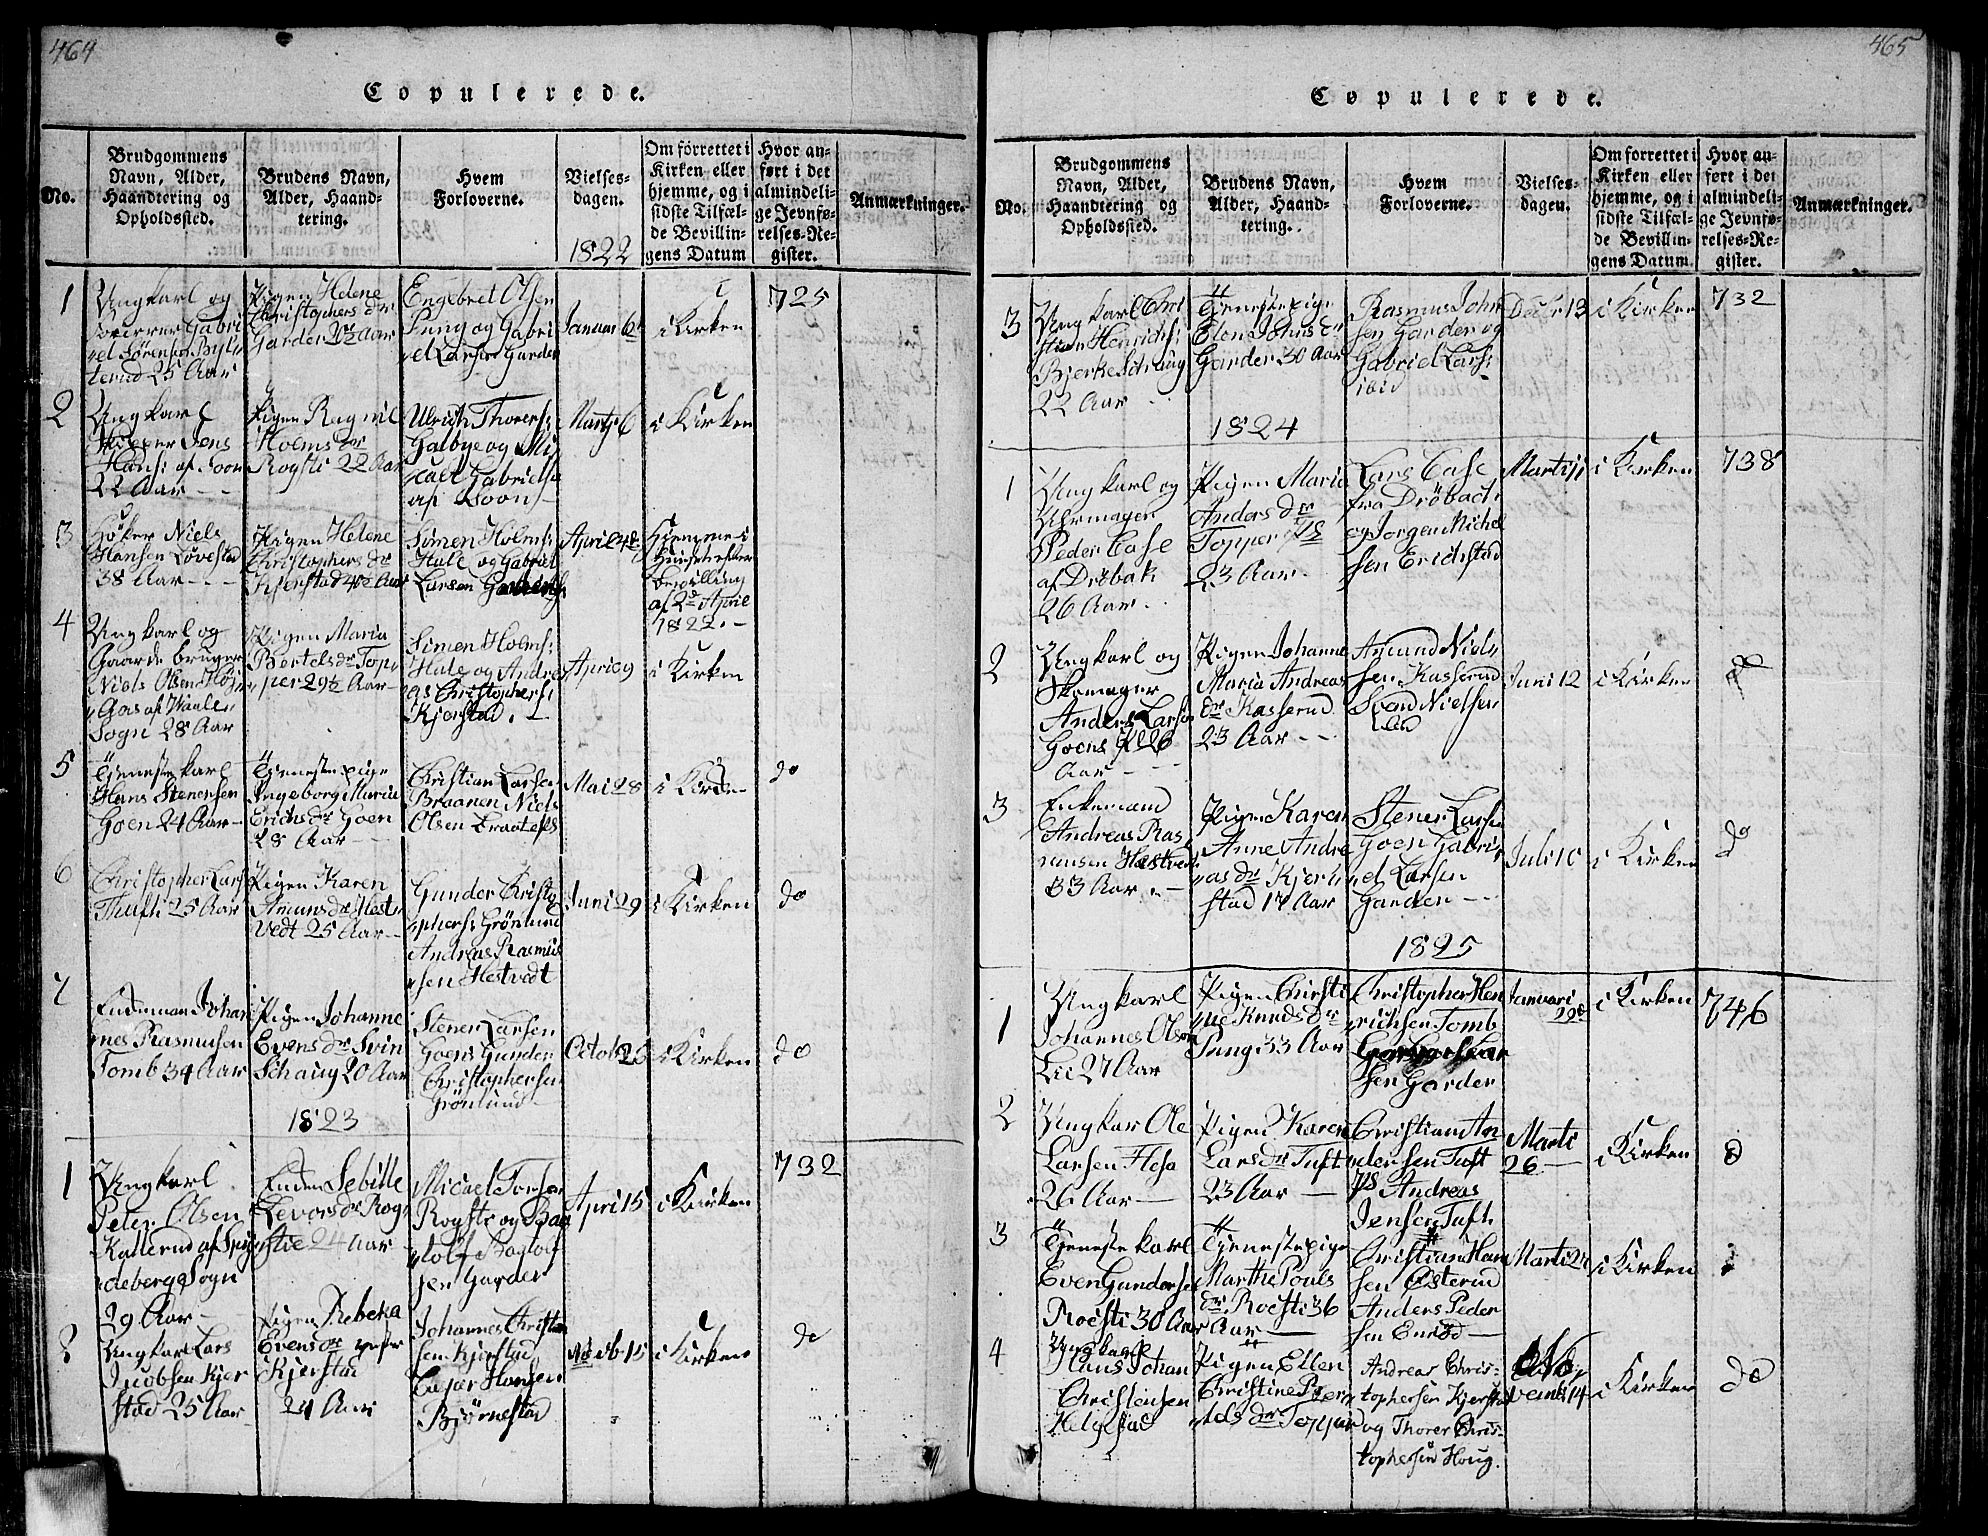 464
Copulerede.
No.
Brudgommens
Navn, Alder,
Haandtering og
Opholdssted.
Brudens Navn,
Alder, Haand-
tering.
Hvem
Forloverne.
Vielses-
dagen.
1822
Om förrettet i
Kirken eller
hjemme, og i
sidste Tilfæl-
de Bevillin-
gens Datum
Hvor an-
ført i det
almindeli-
ge Jevnfø-
relses-Re-
gister.
Anmærkninger.
1
Ungkarl og
Gabri
el Sørensen
terud 25 Aar
Pigen Helene
Christophers dr
Garder 22 Aar
Engebret Olsen
Pung og Gabri
el Larsen Garder
Januari 6te
i Kirken
725
2
Ungkarl
Skipper Jens
Hans: af Soon
22 Aar
Pigen Ragnil
Holms dr
Rogsti 22 Aar
Ulrich Thorers:
Galbye og Mi
cael Gabriels
af Soon
Martji 6
i Kirken
3
Höker Niels
Hansen Lövestad
38 Aar
Pigen Helene
Christophers dr
Kjerstad 42 Aar
Simen Holms:
Hale og Gabriel
Larsen Garder
April 4de
Hjemme i
Huuset efter
bevilling
af 2d Aprie
1822.
4
Ungkarl og
Gaardbruger
Niels Olsen Höj
Gas af Waale
Sogn 28 Aar
Pigen Maria
Bertels dr Top
per 29½ Aar
Simen Holms:
Hale og Andre
as Christophers:
Kjerstad.
April 9
i Kirken
5
Tjenestekarl
Hans Stenersen
Goen 24 Aar
Tjenestepige
Ingeborg Maria
Erichs dr Goen
28 Aar
Christian Larsen
Braanen Niels
Olsen Braatefs
Mai 28
i Kirke
do
6
Christopher Lars
Thuft 25 Aar
Pigen Karen
Amunds dr Hest
vedt 25 Aar
Gunder Christo
phers: Grönlund
Andreas Rasmus
sen Hestvedt
Juni 29
i Kirken
do
7
Enkeman Johan
nes Rasmusen
Tomb 34 Aar
Pigen Johanne
Evens dr Svin
Schaug 20 Aar
Stener Larsen
Goens Gunder
Christophersen
Grönlund
Octob 25
i Kirken
do
1823
1
Ungkarl
Peter Olsen
Kallerud af Spy
deberg Sogn
29 Aar
Enken Sebille
Levors dr Rog
stie 24 Aar
Micael Torsen
Rogsti og Bag
lolf Baglolf
sen Garder
April 5
i Kirken
732
2
Ungkarl Lars
Jacobsen Kjer
stad 25 Aar
Pigen Rebeka
Evens dr
Kjerstad
24 Aar
Johannes Christi
sen Kjerstad
Casper Hansen
Bjørnestad
Novb 15
i Kirken
do
465
Copulerede.
No.
Brudgommens
Navn, Alder,
Haandtering og
Opholdssted.
Brudens Navn,
Alder, Haand-
tering.
Hvem
Forloverne.
Vielses-
dagen.
Om forrettet i
Kirken eller
hjemme, og i
sidste Tilfæl-
de Bevillin-
gens Datum.
Hvor an-
ført i det
almindeli-
ge Jevnfø-
relses-Re-
gister.
Anmærkninger.
3
Ungkarl Chri
stian Henrichs:
Bjerke Schoug
22 Aar
Tjenestepige
Elen Johns dr
Garder 30 Aar
Rasmus John
sen Garder og
Gabriel Lars:
ibid
Decbr 13
i Kirken
732
1824
1
Ungkarl og
Uhrmager
Peder Case
af Dröbak
26 Aar
Pigen Maria
Anders dr
Topper
23 Aar
Lars Case
fra Dröbach
og Jorgen Michel
sen Erichstad
Martji 11
i Kirken
738
2
Ungkarl og
Skomager
Anders Larsen
Goens 26
Aar
Pigen Johanne
Maria Andreas
dr Kasserud
23 Aar
Amund Niels
sen Kasserud
Svend Nielsen
ibid
Juni 12
i Kirken
do
3
Enkemand
Andreas Ras
musen Hæstved
33 Aar
Pigen Karen
Anne Andre
as dr Kjer
stad 17 Aar
Stener Larsen
Goen Gabri
el Larsen
Garder
Juli 10
i Kirken
do
1825
1
Ungkarl
Johannes Olsen
Lie 27 Aar
Pigen Christi
ne Knuds dr
Pung 33 Aar
Christopher Hen
richsen Tomb
Lar
sen Garder
Januari
29de
i Kirken
746
2
Ungkar Ole
Larsen Flesa
26 Aar
Pigen Karen
Lars dr Tuft
23 Aar
Christian An
dersen Tuft
Andreas
Jensen Tuft
Marti
26
i Kirken
d
3
Tjenestekarl
Even Gundersen
Roesti 30 Aar
Tjenestepige
Marthe Pouls
dr Roesti 36
Aar
Christian Han
sen Østerud
Anders Peder
sen Enröd
Marti 27
i Kirken
4
Ungkarl
Hans Johan
Christensen
Helgstad
Pigen Ellen
Christine Ber
tels dr Topper
Andreas Chris-
tophersen Kjerstad
og Thorer Chris-
tophersen Houg.
No
vembr 14
i Kirken
do